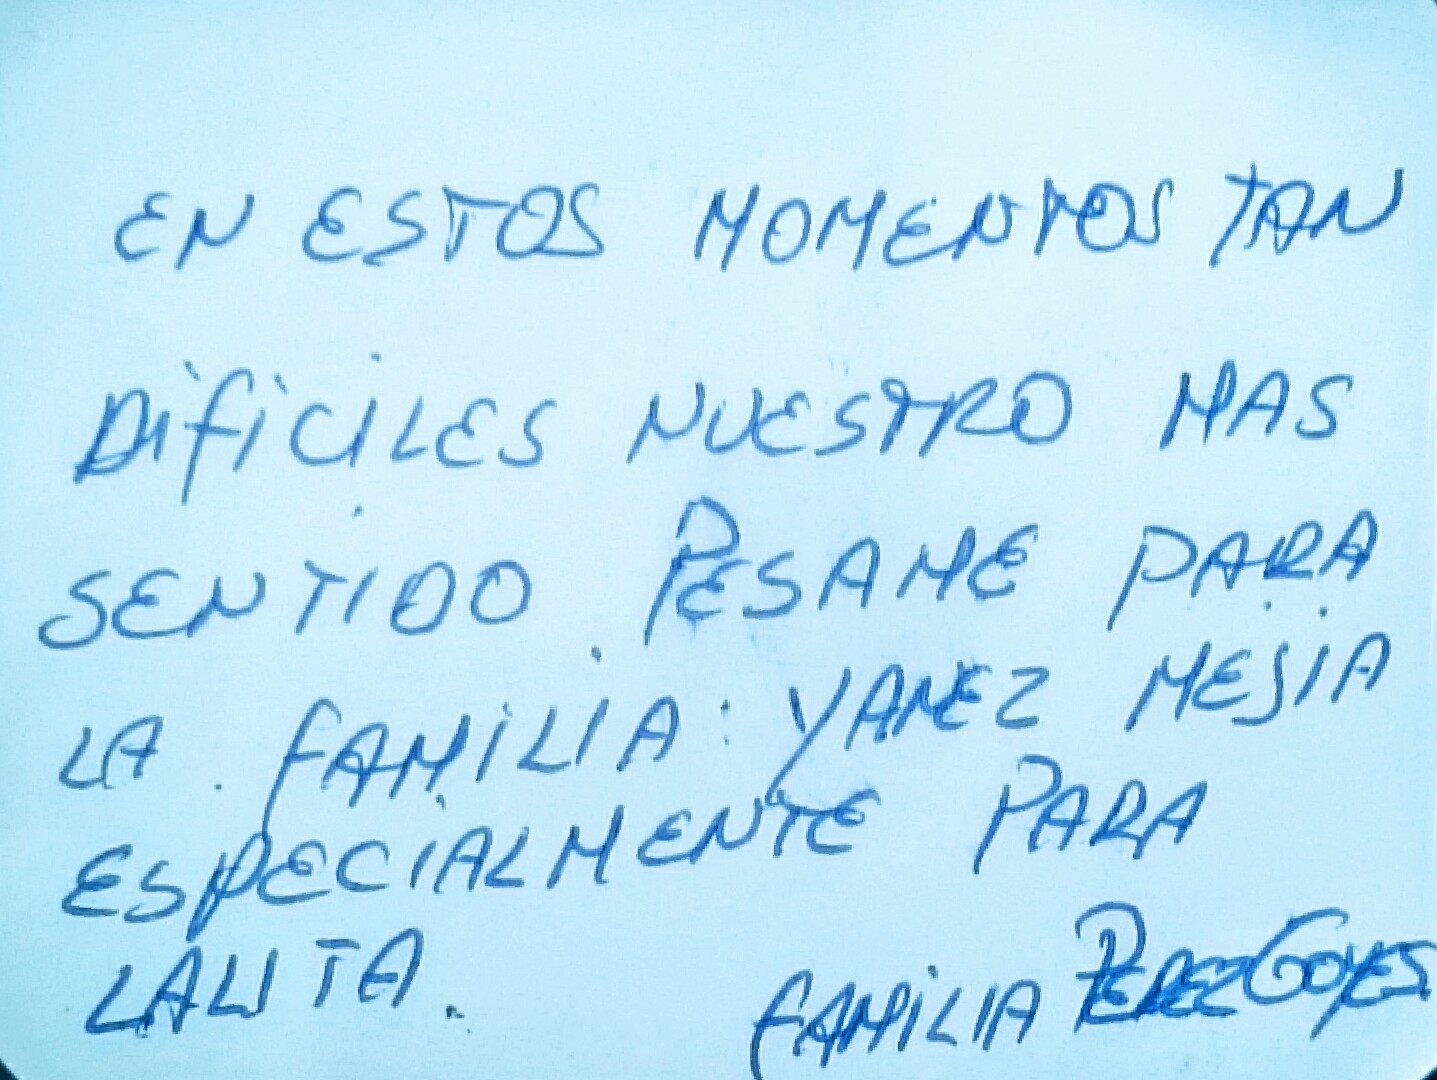 EN ESTOS MOMENTOS TAN
DIFICILES NUESTRO MAS
SENTIDO PESAME PARA
LA FAMILIA: YANEZ MEJIA
ESPECIALMENTE PARA
LALITA.
FAMILIA PEREZ GOYES.